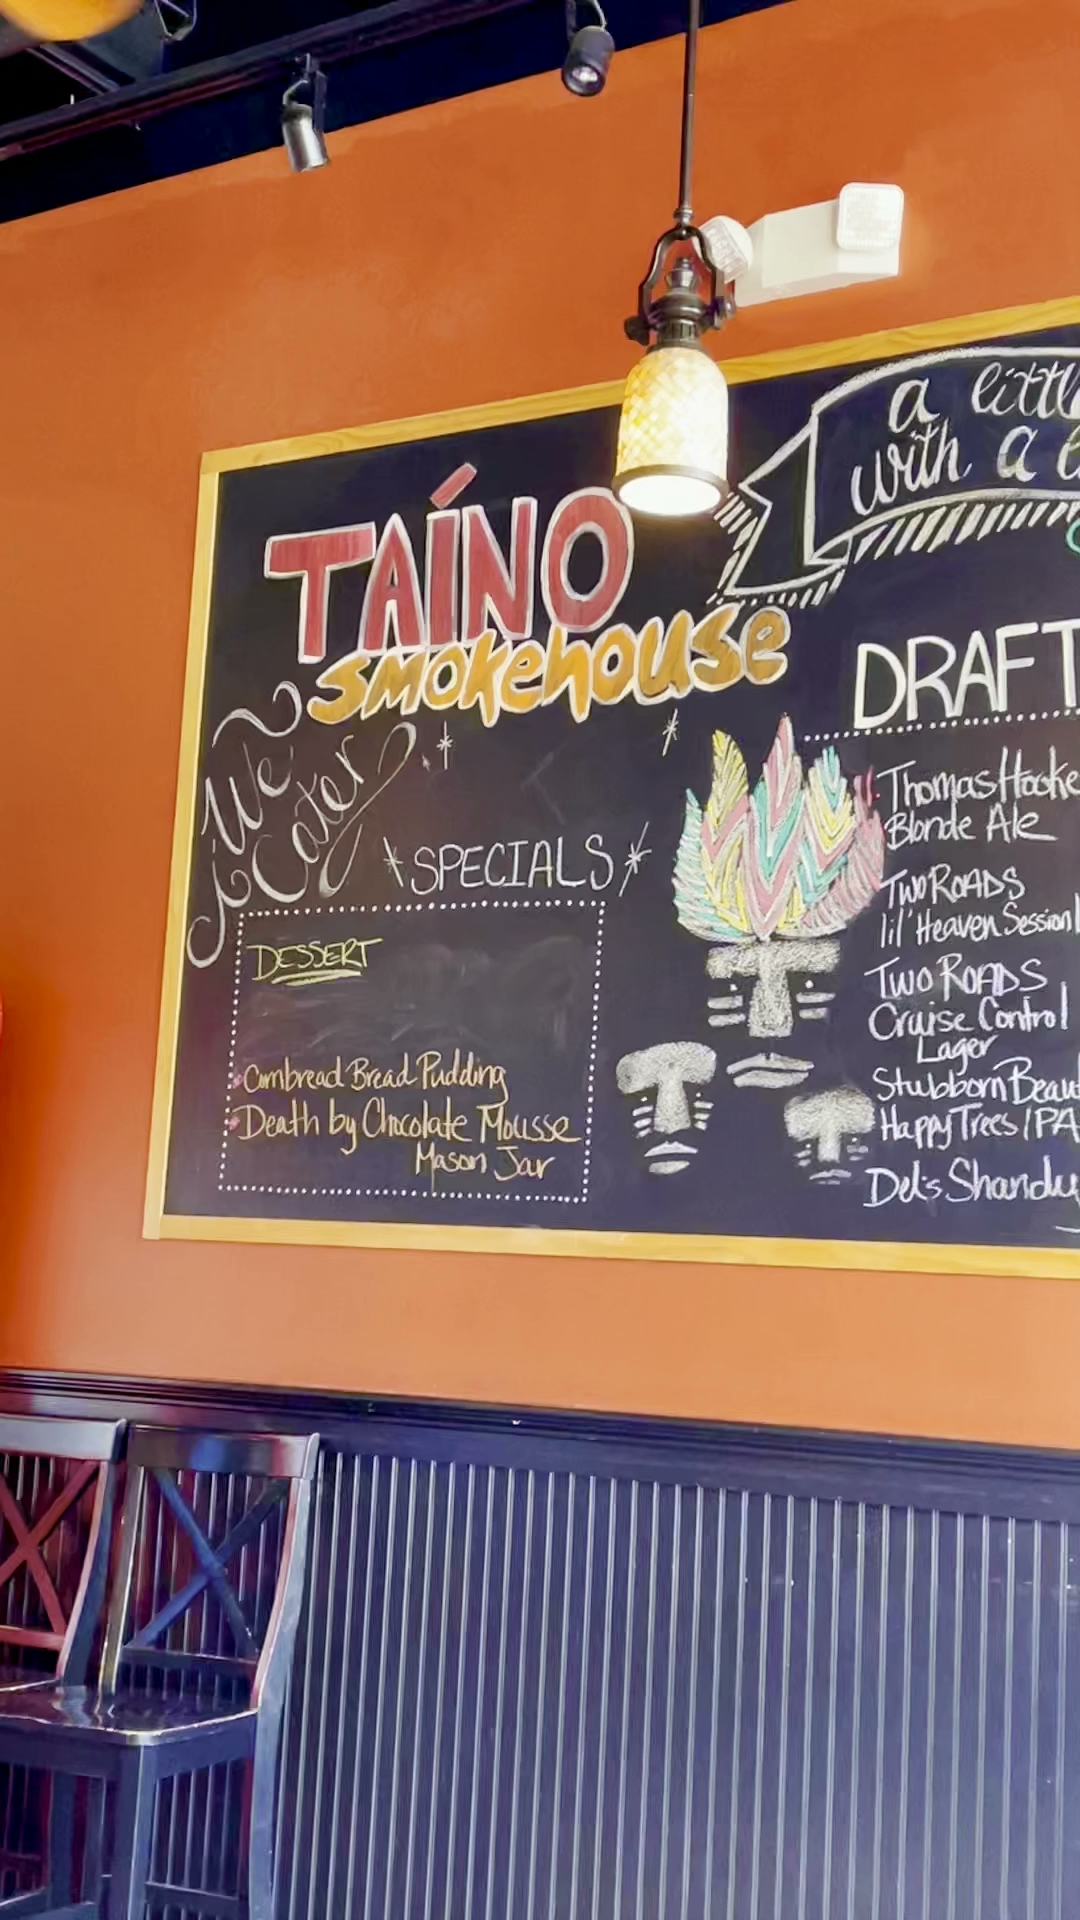 TAÍNO
smokehouse
We
Cater
SPECIALS
DESSERT
Cornbread Bread Pudding
Death by Chocolate Mousse
Mason Jar
a
with a
DRAFT
Thomas
Blonde Ale
Two ROADS
lil' Heaven Session
Two ROADS
Cruise Control
Lager
Stubborn
Happy Trees IPA
Del's Shandy